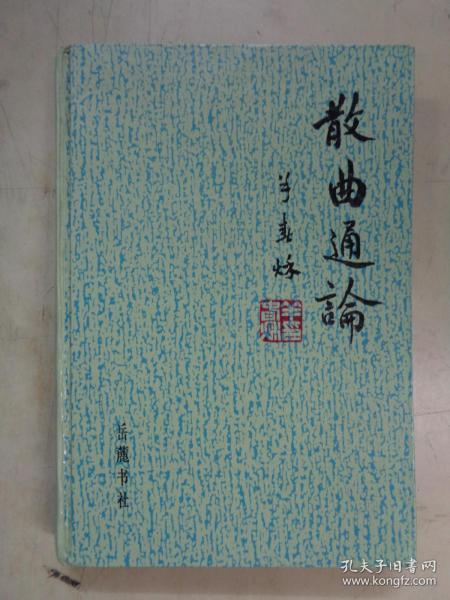 散曲通論
羊春秋
岳麓书社
孔夫子旧书网
www.kongfz.com